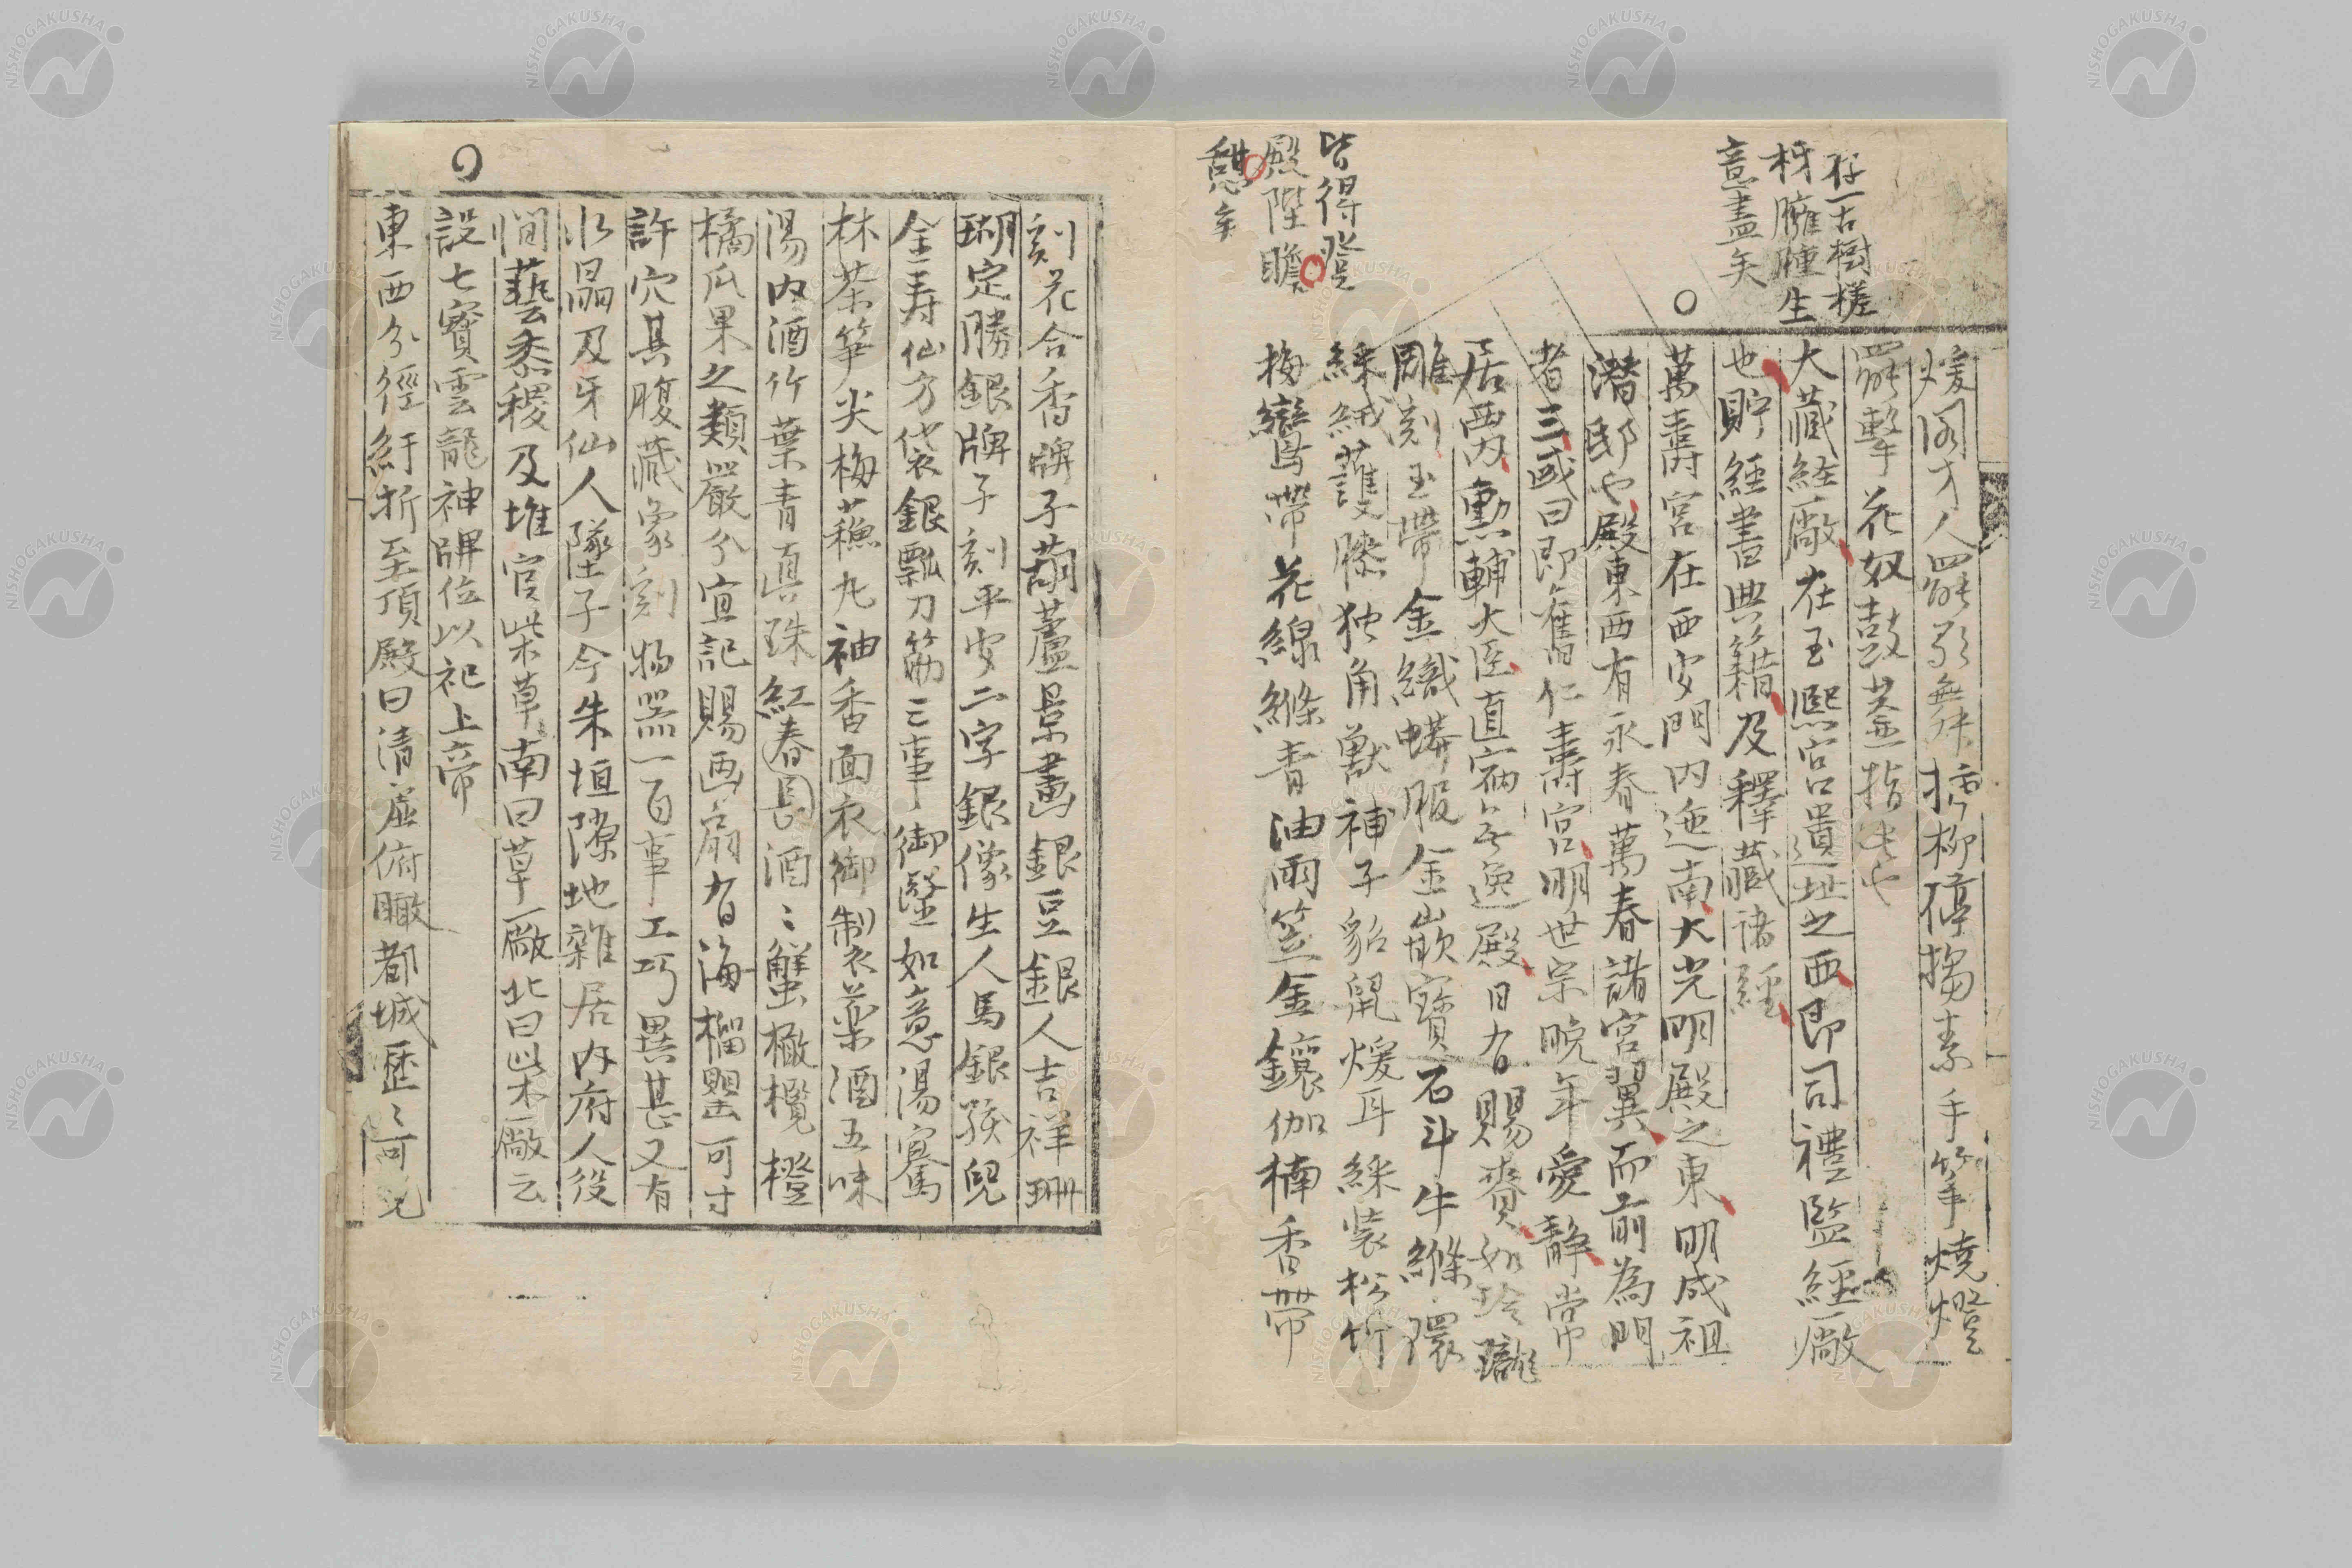 存一古樹槎
枒臃腫生
意盡矣
皆得登
殿陛瞻
憩矣
煖閣才人罷歌舞抟柳停搊素手箏燒燈
罷擊花奴鼓蓋指此也
大藏経廠在玉熙宮遺址之西即司禮監經廠
也貯經書典籍及釋藏諸經
萬壽宮在西安門内迤南大光明殿之東明成祖
潜邸也殿東西有永春萬春諸宮翼而前為門
者三或曰即舊仁壽宮明世宗晩年愛静常
居西内勲輔大臣直宿無逸殿日有賜賚如玲瓏
雕刻玉帶金織蟒服金嵌寶石斗牛縧環
綵絨護膝独角獣補子貂鼠煖耳綵装松竹
梅鸞帶花線縧青油雨笠金鑲伽楠香帶
刻花合香牌子葫蘆景畫銀豆銀人吉祥珊
瑚定勝銀牌子刻平安二字銀像生人馬銀孩兒
金壽仙方袋銀瓢刀筯三事御墨如意湯寫
林茶笋尖梅蘓丸袖香面衣御製薬酒五味
湯内酒竹葉青真珠紅春長酒〻蟹橄欖橙
橘瓜果之類嚴分宜記賜画扇有海榴罌可寸
許穴其腹藏象刻物器一百事工巧異甚又有
水晶及牙仙人墜子今朱垣隙地雜居内府人役
間藝黍稷及堆官柴草南曰草廠北曰柴廠云
設七寳雲龍神牌位以祀上帝
東西分徑紆折至頂殿曰清虚俯瞰都城歷〻可見